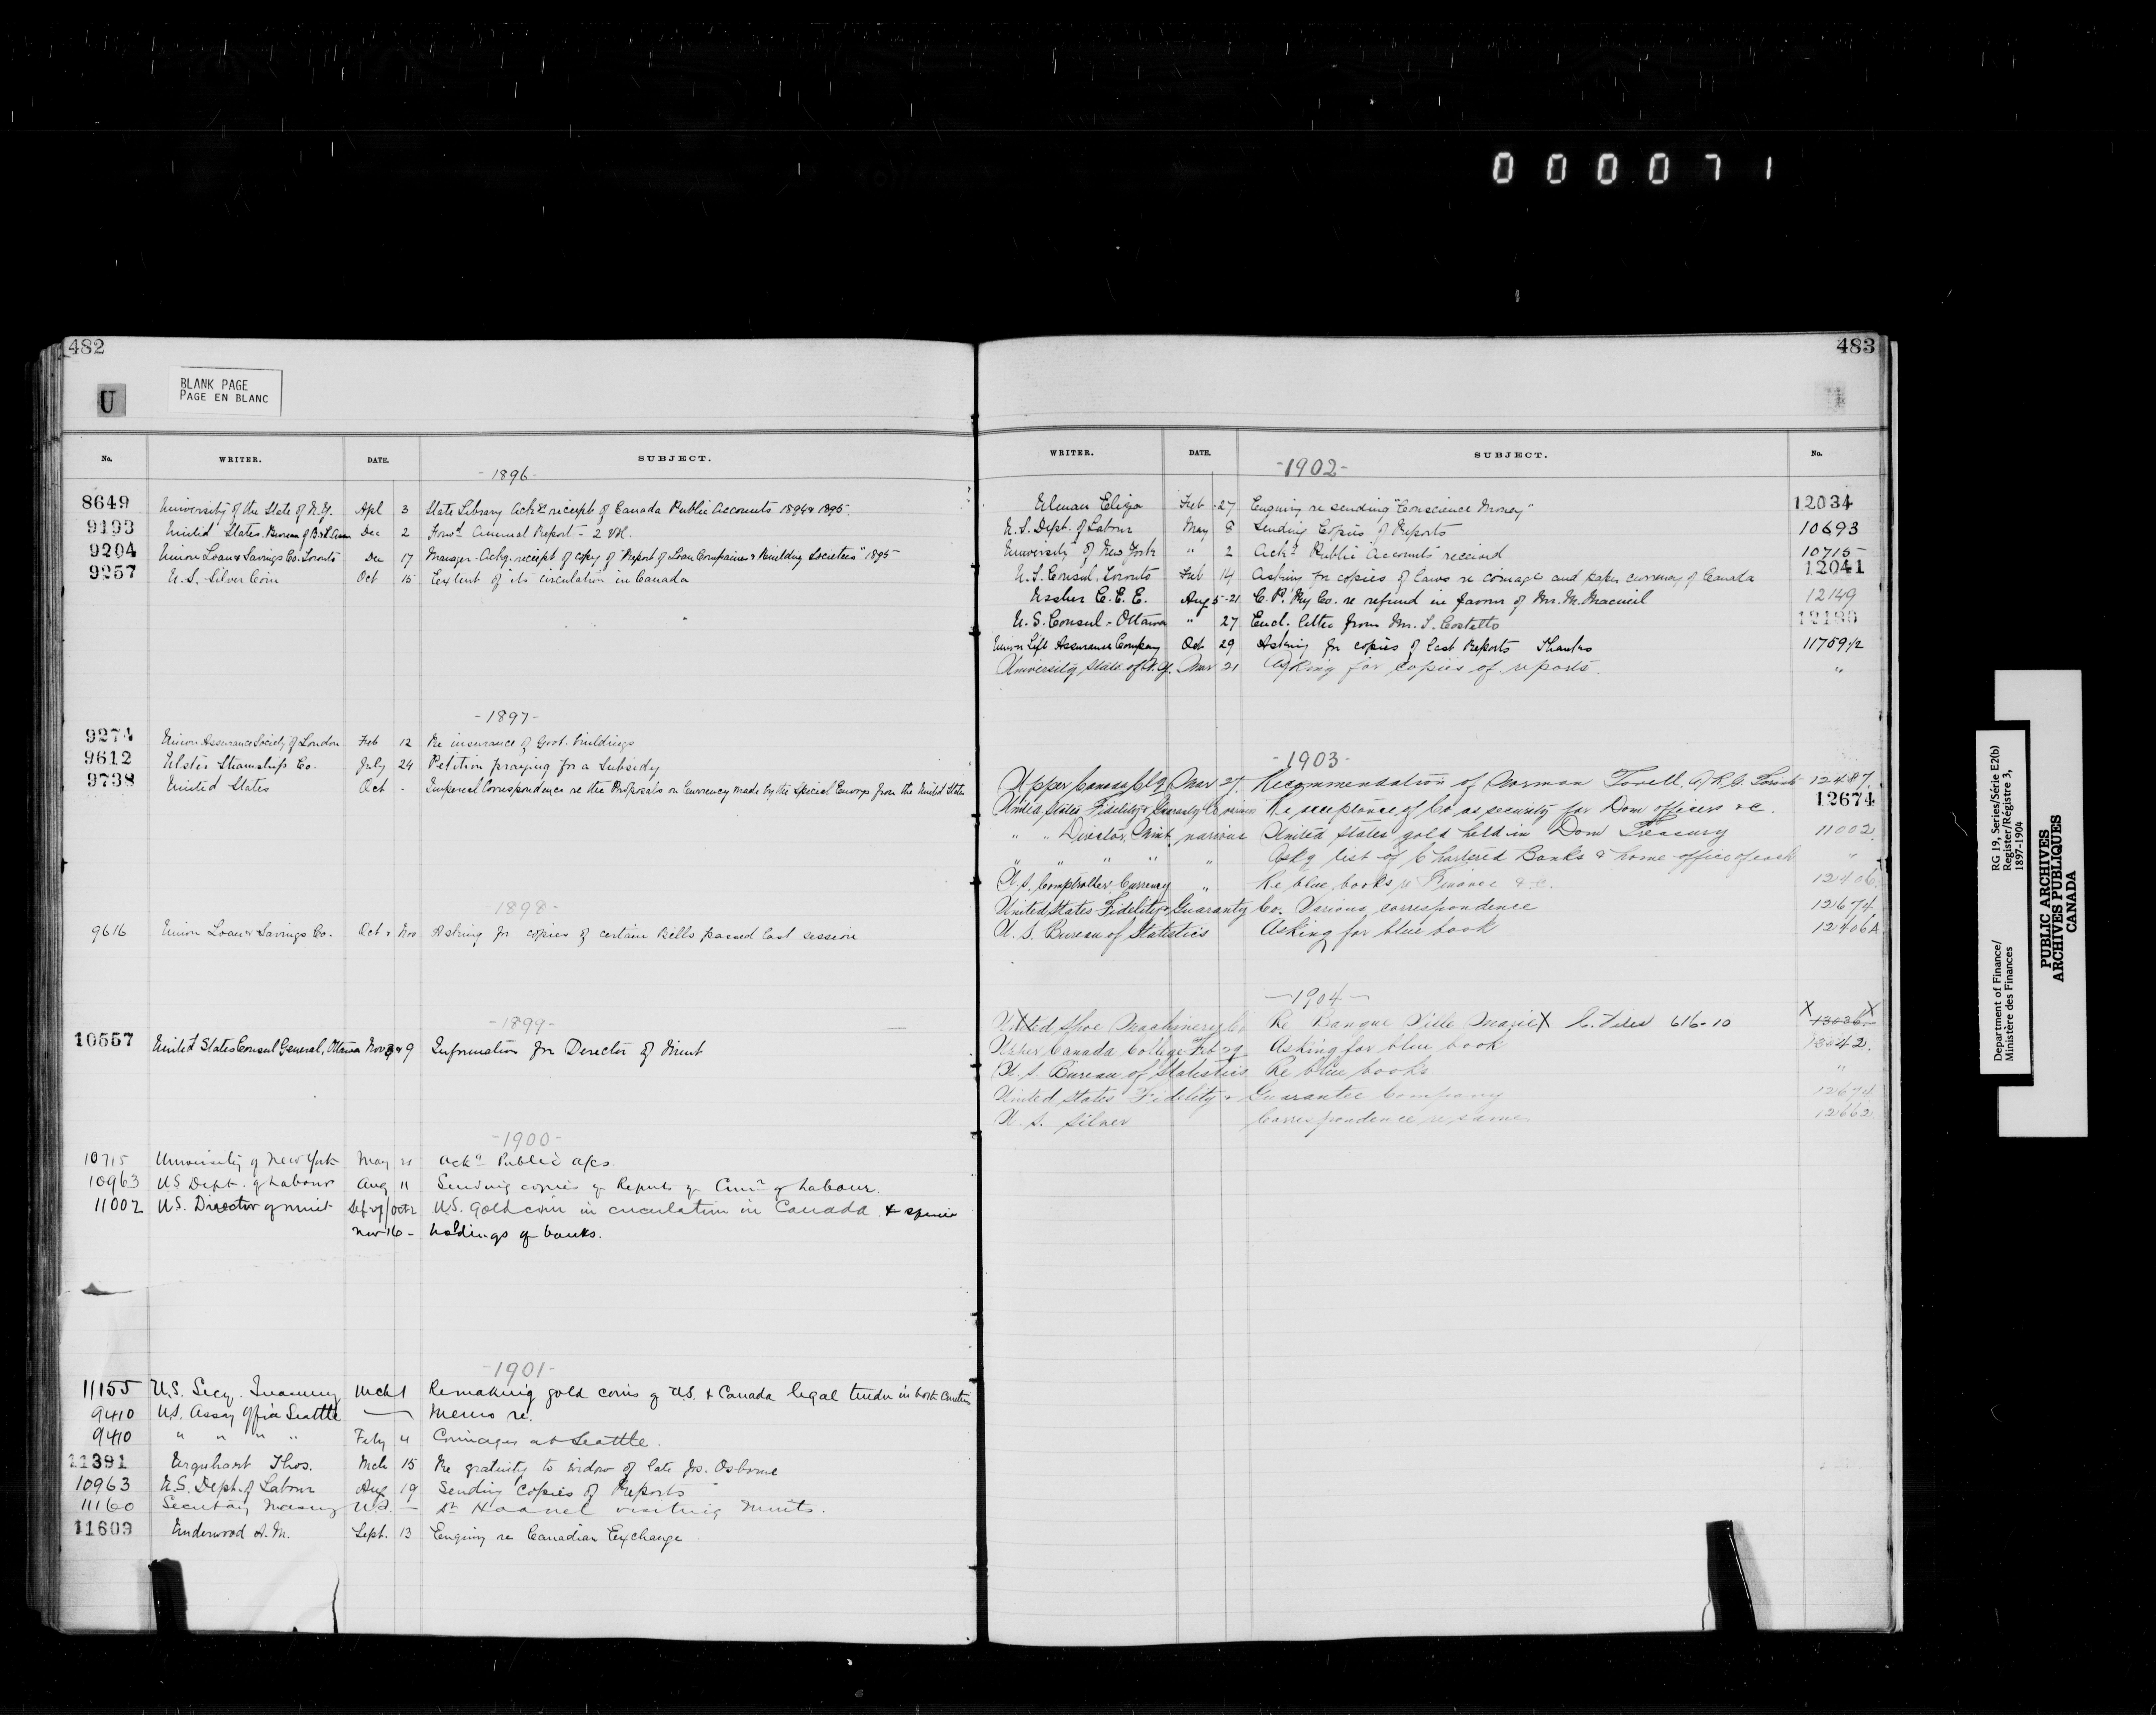 000071
482
U
BLANK PAGE
PAGE EN BLANC
No. WRITER. DATE. SUBJECT.
-1896-
8649 University of the State of N.Y. Apl 3 State Library Ackg receipt of Canada Public Accounts 1894 & 1895.
9193 United States Bureau of Dec 2 Annual Report - 2 Vol.
9204 Union Loan & Savings Co. Toronto Dec 17 Manager Ackg. receipt of copy of "Report of Loan Companies & Building Societies" 1895
9257 U.S. Silver Coin Oct 15 Extent of its circulation in Canada
-1897-
9274 Union Assurance Society of London Feb 12 Re insurance of Govt. Buildings
9612 Ulster Steamship Co. July 24 Petition praying for a Subsidy
9738 United States Oct - Imperial Correspondence re the Proposals on Currency made by the Special Envoys from the United States
-1898-
9616 Union Loan & Savings Co. Oct & Nov Asking for copies of certain Bills passed last session
-1899-
10557 United States Consul General, Ottawa Nov 3 & 9 Information for Director of Mint
-1900-
10715 University of New York May Ackg Public a/cs
10963 US Dept. of Labour Aug 11 Sending copies of Reports of Comr of Labour.
11002 U.S. Director of Mint Sep 27/Oct 2 U.S. Gold coin in circulation in Canada & specie
Nov 16 - holdings of banks.
-1901-
11155 U.S. Secy. Treasury Mch 1 Re making gold coins of U.S. & Canada legal tender in both Countries
9410 U.S. Assay Office Seattle — Memo re.
9410 " " " " Feby 4 Coinages at Seattle.
11391 Urquhart Thos. Mch 15 Re gratuity to widow of late Jos. Osborne
10963 U.S. Dept. of Labour Aug 19 Sending Copies of Reports
11160 Secretary Treasury U.S. — Dr Haanel visiting Mints.
11609 Underwood A. M. Sept. 13 Enquiry re Canadian Exchange
483
WRITER. DATE. SUBJECT. No.
-1902-
Ulman Eliza Feb 27 Enquiry re sending "Conscience Money" 12034
U.S. Dept. of Labour May 8 Sending Copies of Reports 10693
University of New York " 2 Ackg Public Accounts received 10715
U.S. Consul, Toronto Feb 14 Asking for copies of laws re coinage and paper currency of Canada 12041
Ussher C. E. E. Aug 5-21 C. P. Ry Co. re refund in favour of Mr. M. Macneil 12149
U.S. Consul - Ottawa " 27 Encl. letter from Mr. S. Costello
Union Life Assurance Company Oct 29 Asking for copies of last Reports Thanks 11759 1/2
University State of N.Y. Mar 21 Asking for copies of reports. "
-1903-
Upper Canada Clg Mar 27. Recommendation of Norman Towell 12487.
United States Fidelity & Guaranty Co various Re acceptance of Co as security for Dom officers &c. 12674
" " Director, Mint, various United States gold held in Dom Treasury 11002
" " " " " Askg list of Chartered Banks & home office of each "
U.S. Comptroller Currency " Re blue books re Finance &c. 12406
United States Fidelity & Guaranty Co. Various correspondence 12674.
U.S. Bureau of Statistics Asking for blue book 12406A
-1904-
United Shoe Machinery Co Re Banque Ville Marie X 616-10 X 13036 X
Upper Canada College Feb 29 Asking for blue book 13042.
U.S. Bureau of Statistics Re blue books "
United States Fidelity & Guarantee Company 12674
U.S. Silver Correspondence re same 12662
Department of Finance/
Ministère des Finances
RG 19, Series/Série E2(b)
Register/Régistre 3,
1897-1904
PUBLIC ARCHIVES
ARCHIVES PUBLIQUES
CANADA